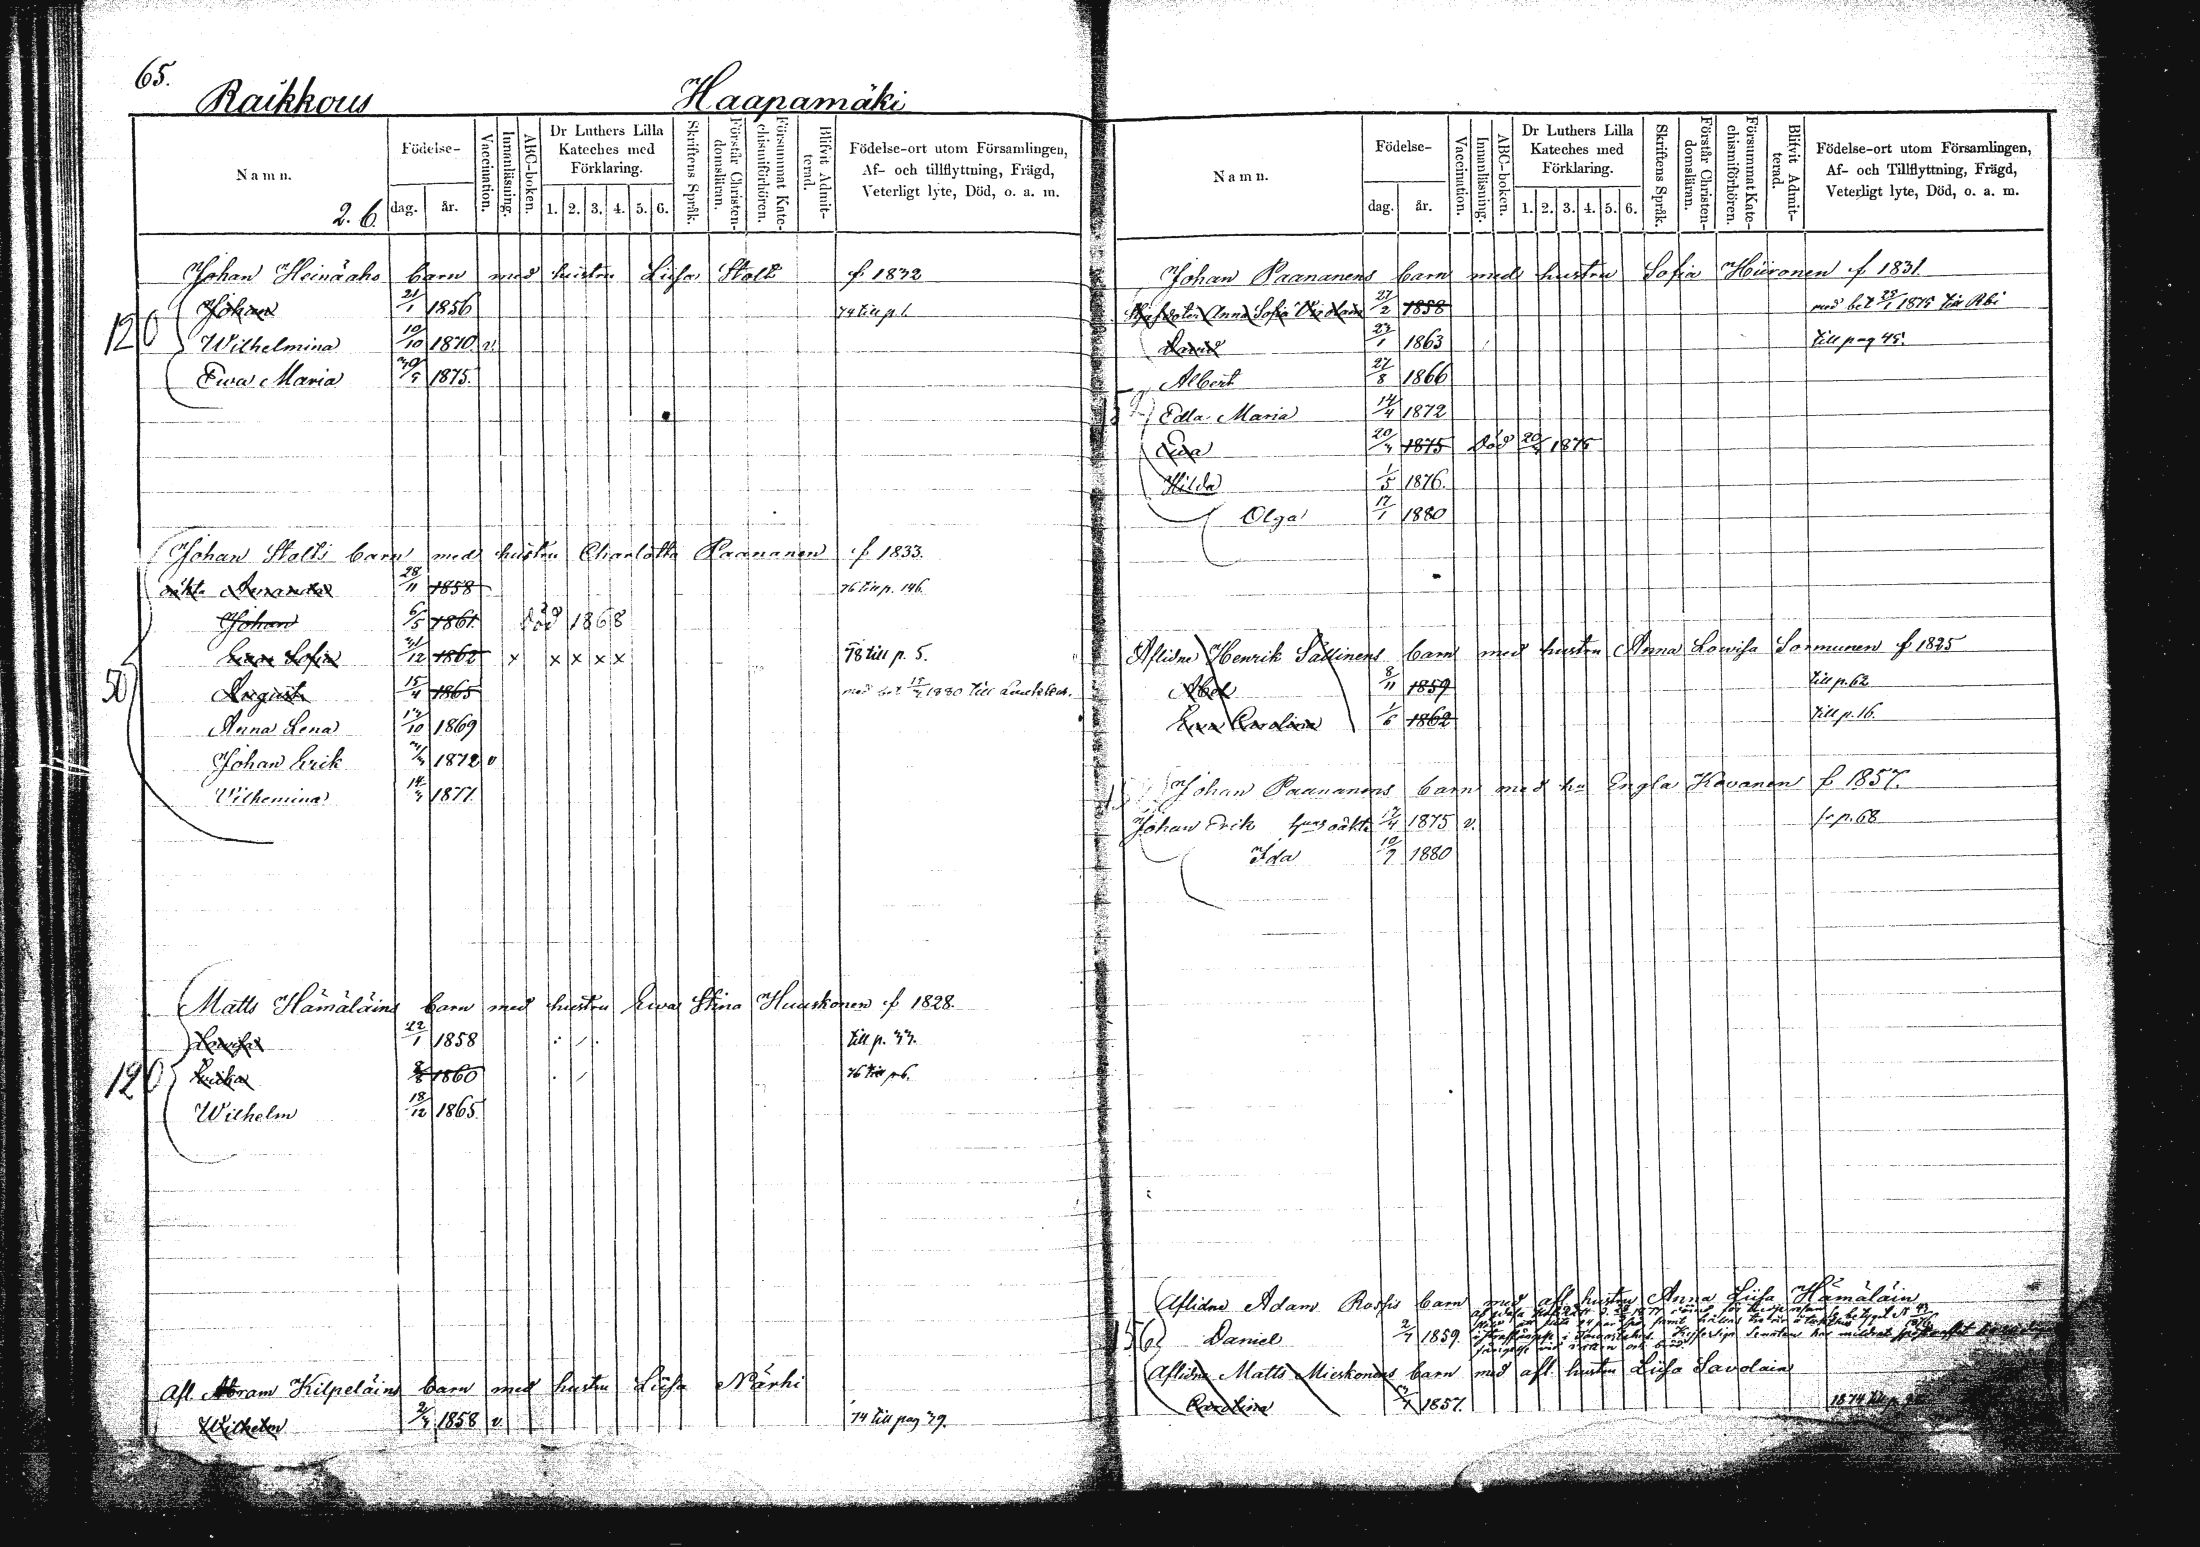 65.
Raikkous Haapamäki
Namn.
2. 6.
Födelse-
dag. år.
Vaccination.
Innanläsning.
ABC-boken.
Dr Luthers Lilla
Kateches med
Förklaring.
1. 2. 3. 4. 5. 6.
Skriftens Språk.
Förstår Christen-
domsläran.
Försummat Kate-
chismiförhören.
Blifvit Admit-
terad.
Födelse-ort utom Församlingen,
Af- och tillflyttning, Frägd,
Veterligt lyte, Död, o. a. m.
Johan Heinäahos barn med hustru Liisa Stolt f 1832
120
Johan 21/1 1856 74 till p. 1.
Wilhelmina 10/10 1870 v.
Ewa Maria 1875.
Johan Stolts barn med hustru Charlotta Paananen f 1833.
oäkta Amanda 28/11 1858 76 till p. 146.
Johan 6/5 1861 död 1868
Sofia 21/12 1862 x x x x x 78 till p. 5.
50
August 15/4 1865 med bet. 1880 till
Anna Lena 1869
Johan Erik 1872 v
Vilhemina 1877.
Matts Hämäläins barn med hustru Ewa Stina Huuskonen f 1828.
Lovisa 22/1 1858 till p. 33.
120
Erika 1860 76 till p 6.
Wilhelm 18/12 1865.
Afl. Abram Kilpeläins barn med hustru Liisa Närhi
Wilhelm 1858 v. 74 till pag 79.
Namn.
Födelse-
dag. år.
Vaccination.
Innanläsning.
ABC-boken.
Dr Luthers Lilla
Kateches med
Förklaring.
1. 2. 3. 4. 5. 6.
Skriftens Språk.
Förstår Christen-
domsläran.
Försummat Kate-
chismiförhören.
Blifvit Admit-
terad.
Födelse-ort utom Församlingen,
Af- och Tillflyttning, Frägd,
Veterligt lyte, Död, o. a. m.
Johan Paananens barn med hustru Sofia Hiironen f 1831.
Anna Sofia 27/2 1858 med bet 1875 till
David 23/1 1863 till pag 45.
Albert 27/8 1866
Edla Maria 14/4 1872
Ewa 1875 död 1875
Hilda 1/5 1876.
Olga 17/1 1880
Aflidne Henrik Sallinens barn med hustru Anna Lowisa Sormunen f 1825
Abel 8/11 1859 till p. 62
Ewa Carolina 1862 till p. 16.
Johan Paananens barn med hu Engla Kovanen f 1857.
Johan Erik oäkta 1875 v. fr p. 68
Ida 10/9 1880
Aflidne Adam Rossis barn med afl. hustru Anna Liisa Hämäläin
156
Daniel 1859.
Aflidne Matts Mieskonens barn med afl. hustru Liisa Savolain
Carolina 1857. 1874 till p.